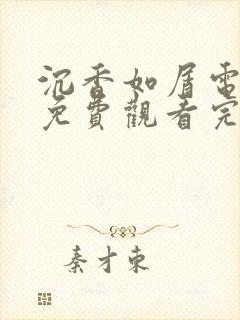 沉香如屑電
免費觀看完
秦才東